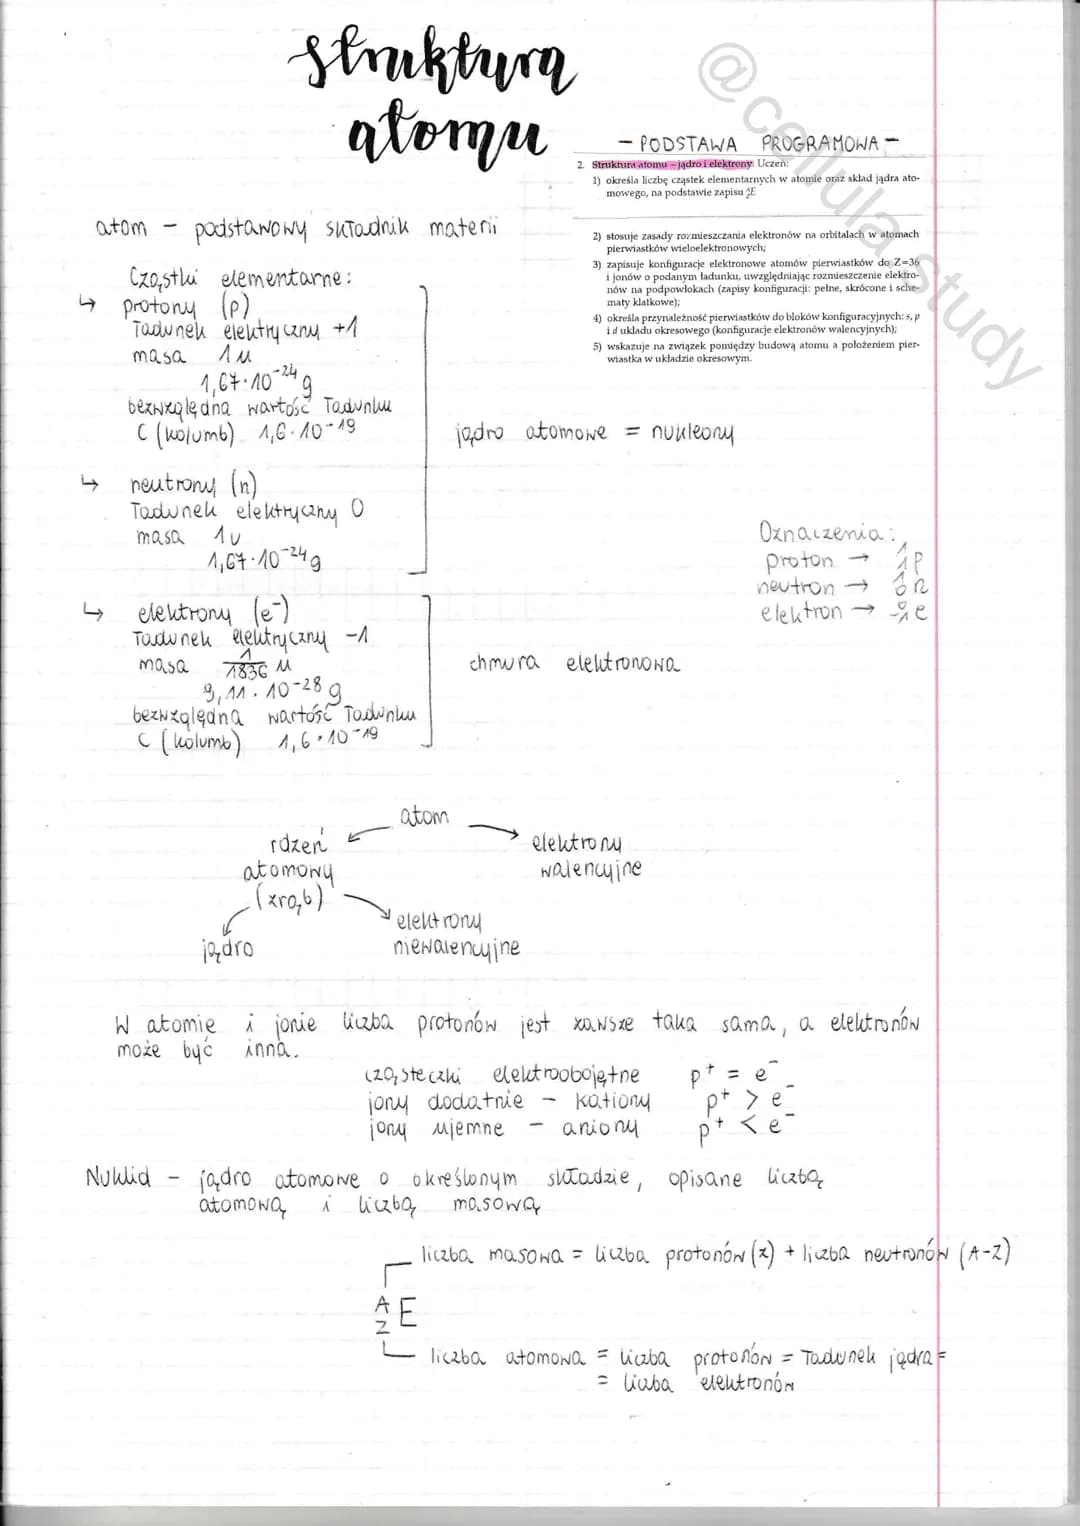 struktura
atomu
@cellula.study
- PODSTAWA PROGRAMOWA -
2. Struktura atomu – jądro i elektrony. Uczeń:
1) określa liczbę cząstek elementarnych w atomie oraz skład jądra ato-
mowego, na podstawie zapisu ᴬ_Z E
2) stosuje zasady rozmieszczania elektronów na orbitalach w atomach
pierwiastków wieloelektronowych;
3) zapisuje konfiguracje elektronowe atomów pierwiastków do Z=36
i jonów o podanym ładunku, uwzględniając rozmieszczenie elektro-
nów na podpowłokach (zapisy konfiguracji: pełne, skrócone i sche-
maty klatkowe);
4) określa przynależność pierwiastków do bloków konfiguracyjnych: s, p
i d układu okresowego (konfiguracje elektronów walencyjnych);
5) wskazuje na związek pomiędzy budową atomu a położeniem pier-
wiastka w układzie okresowym.
atom - podstawowy składnik materii
Cząstki elementarne:
↳ protony (p)
ładunek elektryczny +1
masa 1u
1,67·10⁻²⁴ g
bezwzględna wartość ładunku
C (kolumb) 1,6·10⁻¹⁹
jądro atomowe = nukleony
↳ neutrony (n)
ładunek elektryczny 0
masa 1u
1,67·10⁻²⁴ g
Oznaczenia:
proton → ¹₁p
neutron → ¹₀n
elektron → ⁰₋₁e
↳ elektrony (e⁻)
ładunek elektryczny -1
masa 1/1836 u
9,11·10⁻²⁸ g
bezwzględna wartość ładunku
C (kolumb) 1,6·10⁻¹⁹
chmura elektronowa
atom
rdzeń
atomowy
(zrąb)
elektrony
walencyjne
jądro
elektrony
niewalencyjne
W atomie i jonie liczba protonów jest zawsze taka sama, a elektronów
może być inna.
cząsteczki elektroobojętne p⁺ = e⁻
jony dodatnie - kationy p⁺ > e⁻
jony ujemne - aniony p⁺ < e⁻
Nuklid - jądro atomowe o określonym składzie, opisane liczbą
atomową i liczbą masową
liczba masowa = liczba protonów (z) + liczba neutronów (A-Z)
A
Z E
liczba atomowa = liczba protonów = ładunek jądra =
= liczba elektronów